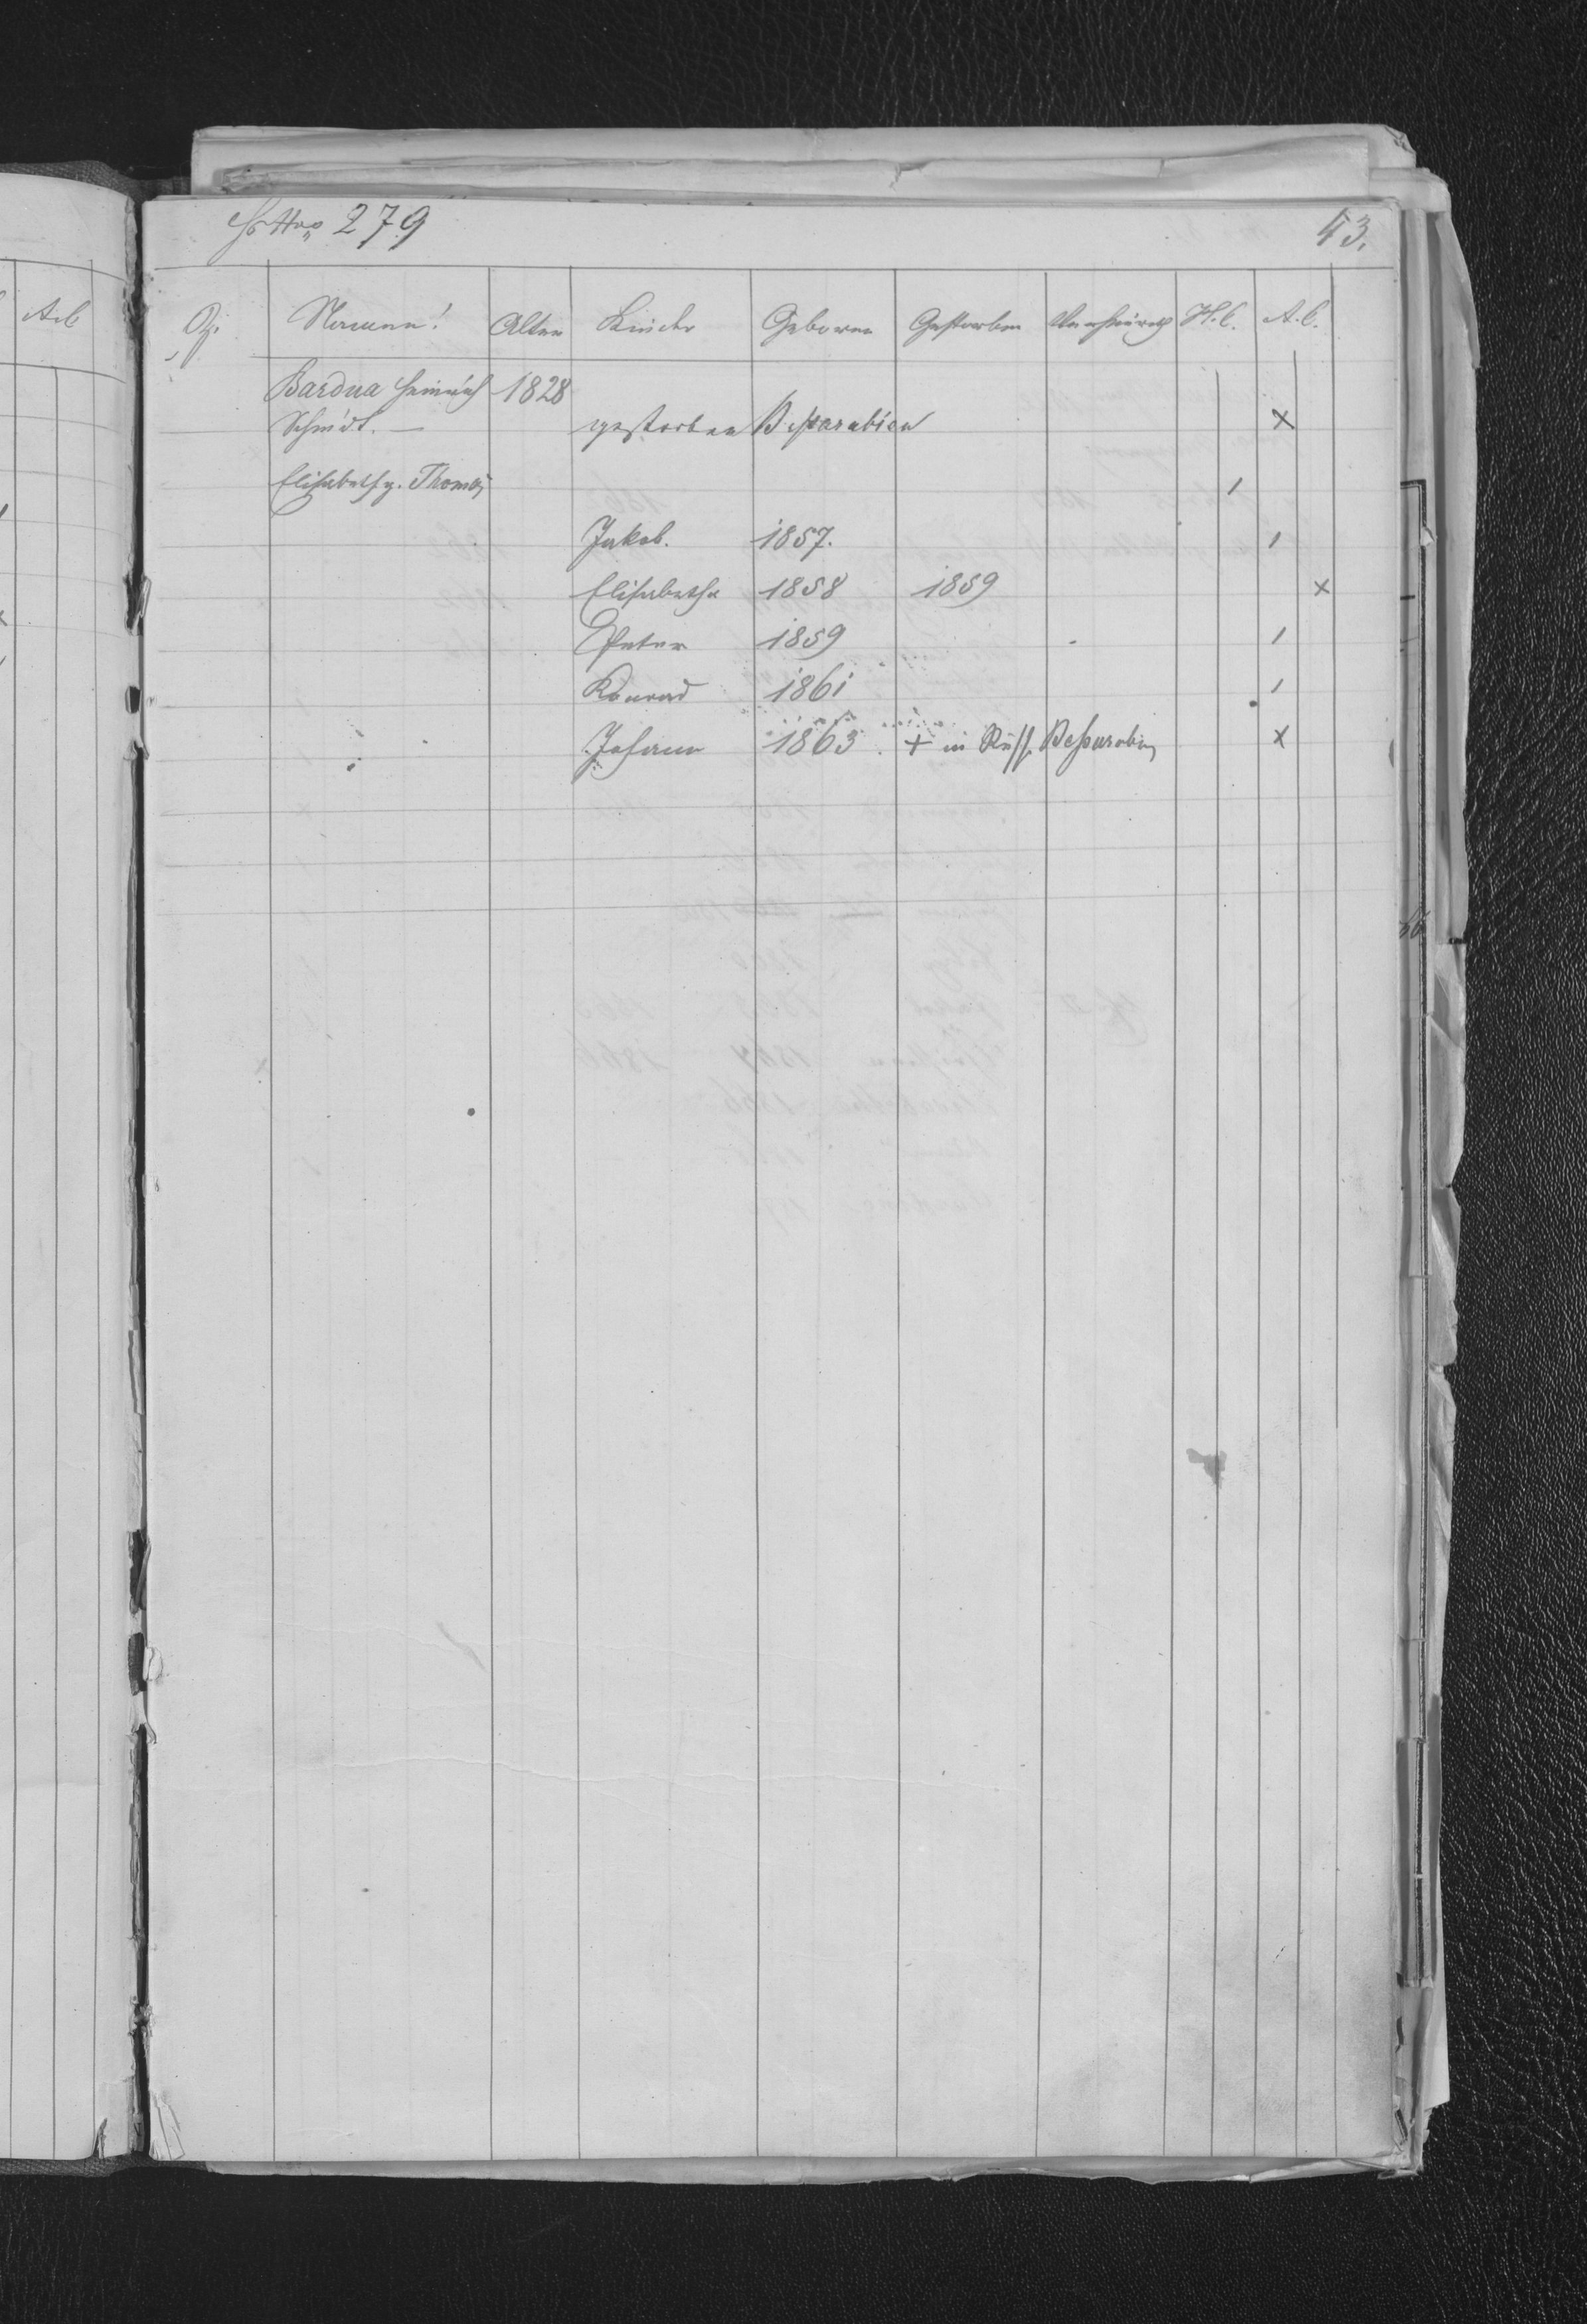 Hs Nro 279 43.
Z. Namen! Alter Kinder Geboren Gestorben Verheirath H.l. A.l.
Bardua Heinrich 1828
Schmidt. — gestorben Bessarabien x
Elisabeth g. Thomas /
Jakob. 1857. /
Elisabetha 1858 1859 x
Peter 1859 /
Konrad 1861 /
Johann 1863 + in Russ. Bessarabien x